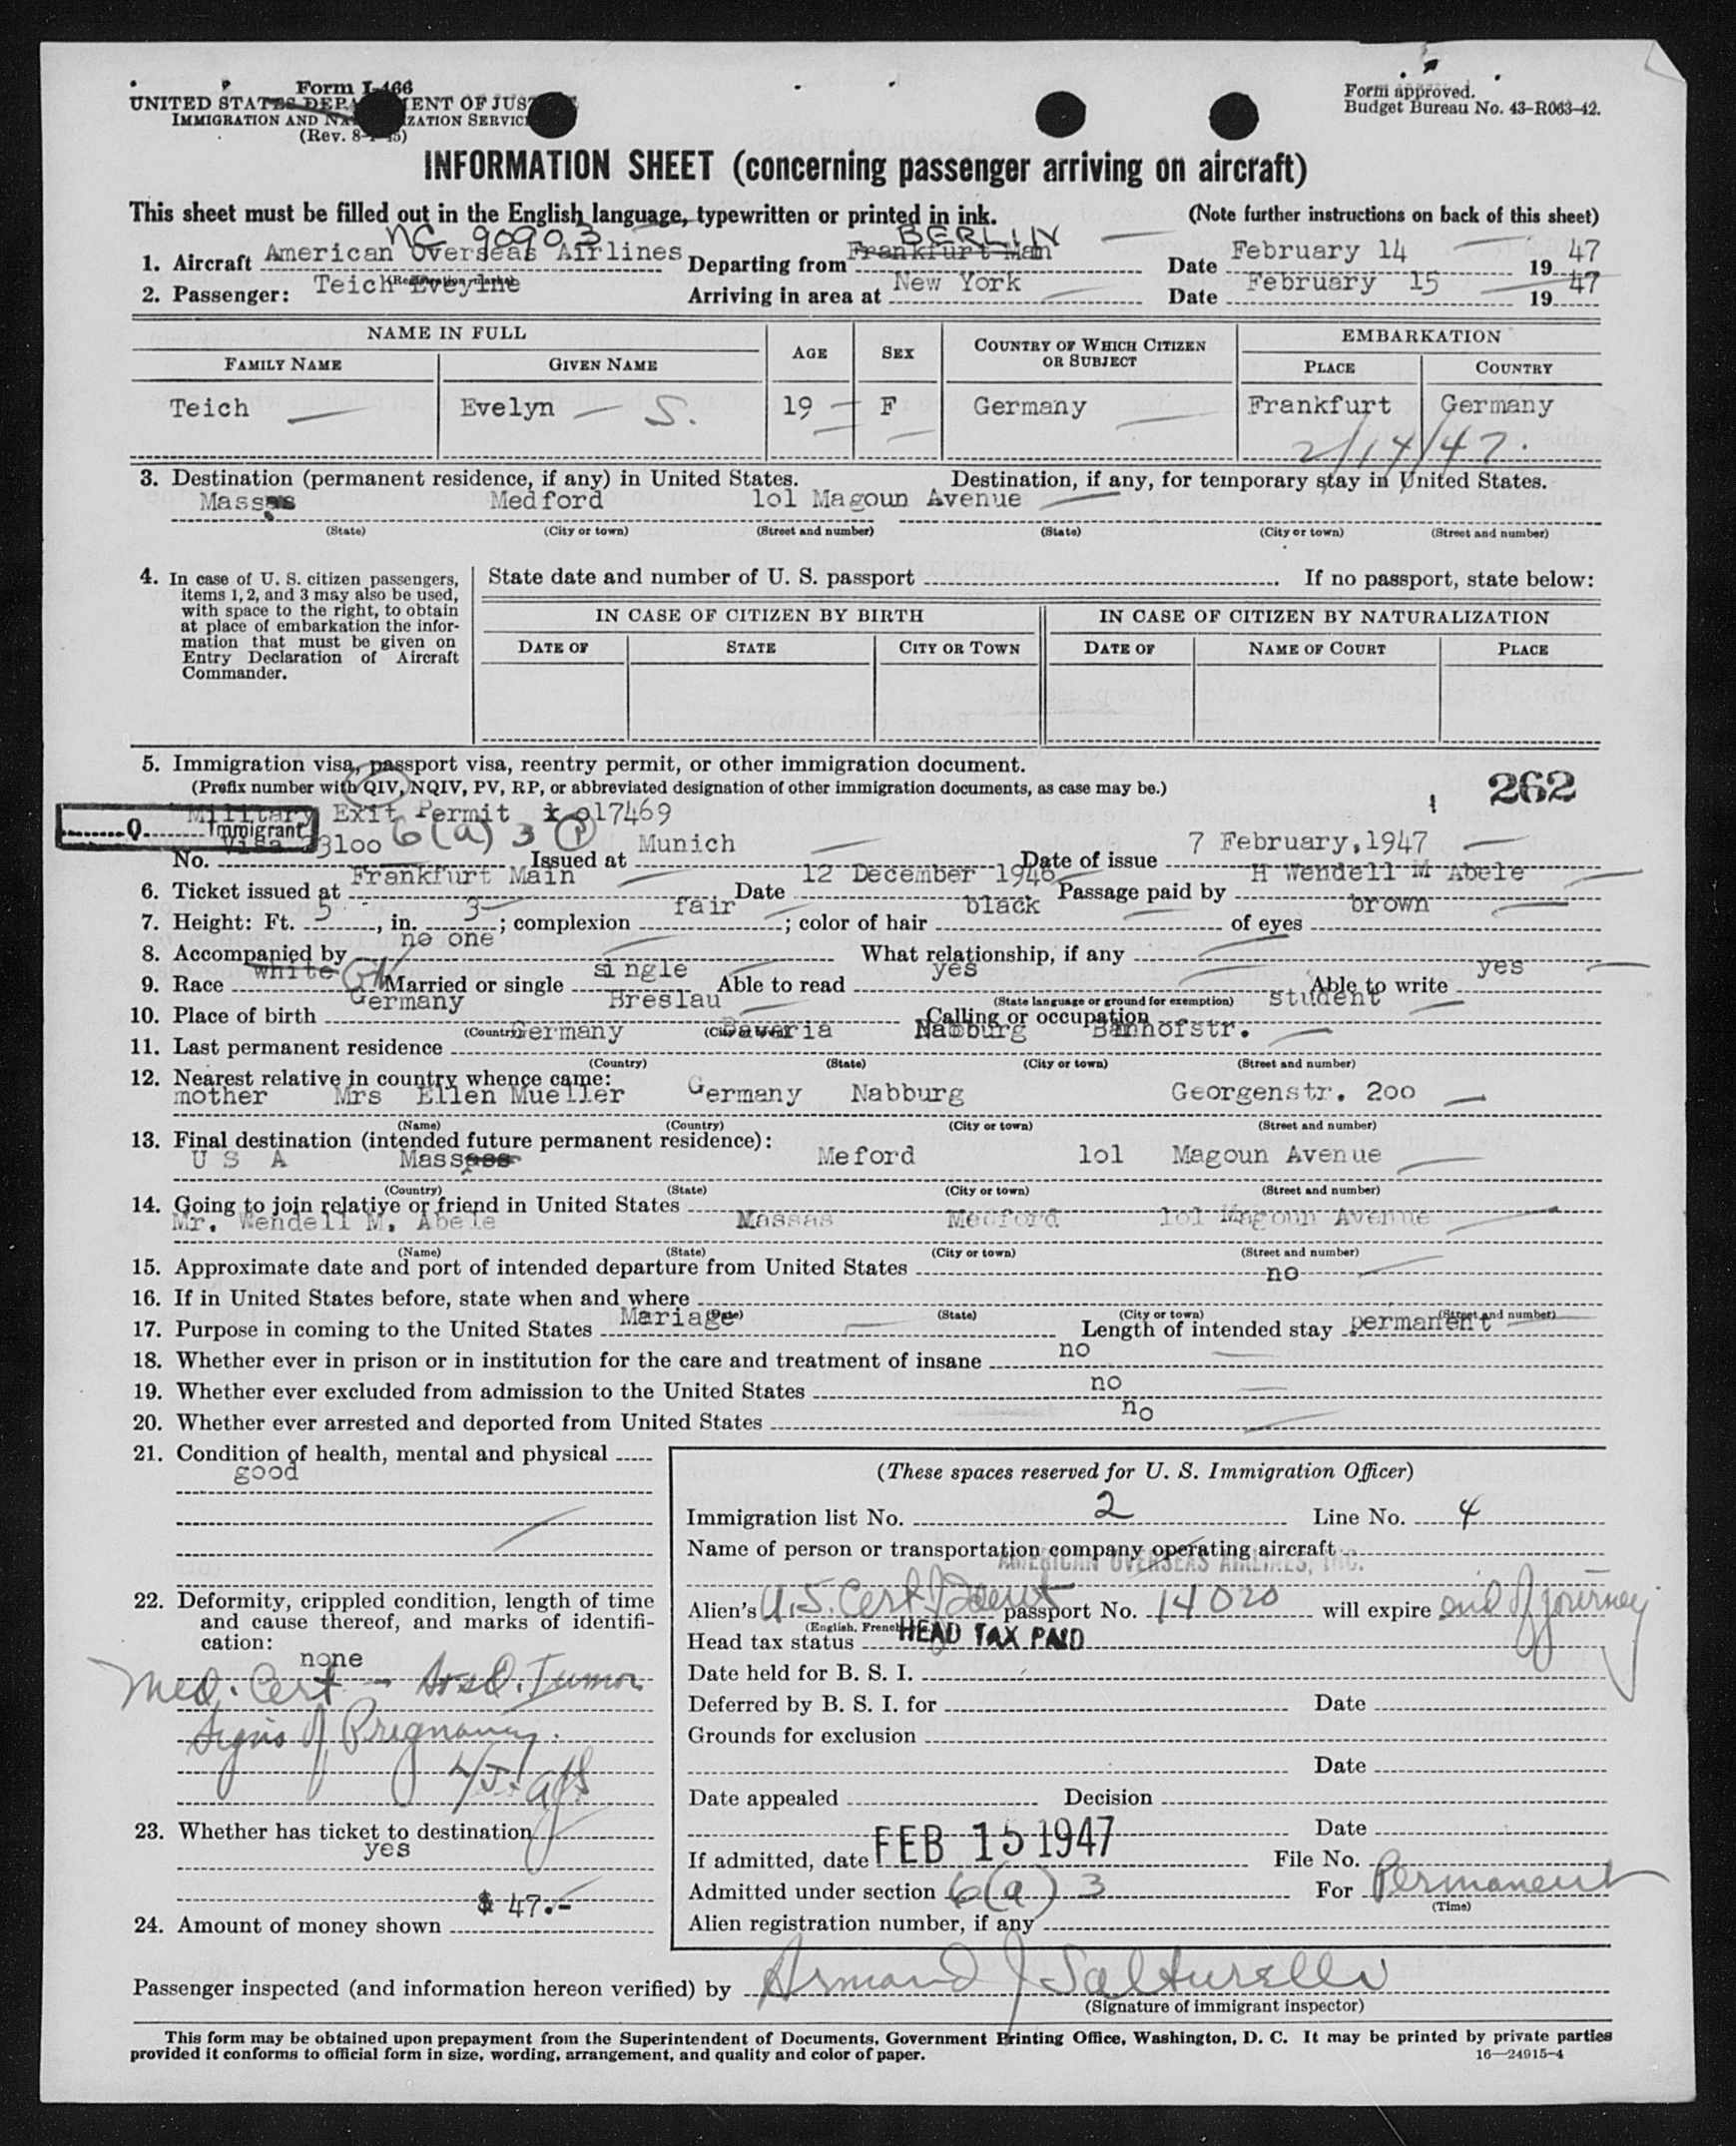 Form I-466
UNITED STATES DEPA ENT OF JUS
IMMIGRATION AND NA ZATION SERVIC
(Rev. 8-1-45)
Form approved.
Budget Bureau No. 43-R063-42.
INFORMATION SHEET (concerning passenger arriving on aircraft)
This sheet must be filled out in the English language, typewritten or printed in ink. (Note further instructions on back of this sheet)
NC 90903 BERLIN
1. Aircraft American Overseas Airlines Departing from Frankfurt Main Date February 14 1947
(Registration marks)
2. Passenger: Teich Eveyine Arriving in area at New York Date February 15 1947
NAME IN FULL AGE SEX COUNTRY OF WHICH CITIZEN OR SUBJECT EMBARKATION
FAMILY NAME GIVEN NAME PLACE COUNTRY
Teich Evelyn S. 19 F Germany Frankfurt Germany
2/14/47.
3. Destination (permanent residence, if any) in United States. Destination, if any, for temporary stay in United States.
Massas Medford lol Magoun Avenue
(State) (City or town) (Street and number) (State) (City or town) (Street and number)
4. In case of U. S. citizen passengers, items 1, 2, and 3 may also be used, with space to the right, to obtain at place of embarkation the information that must be given on Entry Declaration of Aircraft Commander.
State date and number of U. S. passport If no passport, state below:
IN CASE OF CITIZEN BY BIRTH IN CASE OF CITIZEN BY NATURALIZATION
DATE OF STATE CITY OR TOWN DATE OF NAME OF COURT PLACE
5. Immigration visa, passport visa, reentry permit, or other immigration document.
(Prefix number with QIV, NQIV, PV, RP, or abbreviated designation of other immigration documents, as case may be.)
262
Military Exit Permit o17469
Q Immigrant
No. Visa 33loo 6(a) 3 Issued at Munich Date of issue 7 February,1947
6. Ticket issued at Frankfurt Main Date 12 December 1946 Passage paid by H Wendell M Abele
7. Height: Ft. 5, in. 3; complexion fair; color of hair black of eyes brown
8. Accompanied by no one What relationship, if any
9. Race white Married or single single Able to read yes Able to write yes
(State language or ground for exemption)
10. Place of birth Germany Breslau Calling or occupation student
(Country) (City or town)
11. Last permanent residence Germany Bavaria Nabburg Bahnhofstr.
(Country) (State) (City or town) (Street and number)
12. Nearest relative in country whence came:
mother Mrs Ellen Mueller Germany Nabburg Georgenstr. 2oo
(Name) (Country) (City or town) (Street and number)
13. Final destination (intended future permanent residence):
U S A Mass Meford lol Magoun Avenue
(Country) (State) (City or town) (Street and number)
14. Going to join relative or friend in United States
Mr. Wendell M. Abele Massas Medford lol Magoun Avenue
(Name) (State) (City or town) (Street and number)
15. Approximate date and port of intended departure from United States
no
16. If in United States before, state when and where
(Date) (State) (City or town) (Street and number)
17. Purpose in coming to the United States Mariage Length of intended stay permanent
18. Whether ever in prison or in institution for the care and treatment of insane no
19. Whether ever excluded from admission to the United States no
20. Whether ever arrested and deported from United States no
21. Condition of health, mental and physical
good
22. Deformity, crippled condition, length of time and cause thereof, and marks of identification:
none
Med. Cert - Tumor
Signs of Pregnancy.
23. Whether has ticket to destination
yes
24. Amount of money shown $ 47.-
(These spaces reserved for U. S. Immigration Officer)
Immigration list No. 2 Line No. 4
Name of person or transportation company operating aircraft
AMERICAN OVERSEAS AIRLINES, INC.
Alien's U.S. Cert Ident passport No. 14020 will expire end of journey
Head tax status HEAD TAX PAID
Date held for B. S. I.
Deferred by B. S. I. for Date
Grounds for exclusion
Date
Date appealed Decision
Date
If admitted, date FEB 15 1947 File No.
Admitted under section 6(a) 3 For Permanent
(Time)
Alien registration number, if any
Passenger inspected (and information hereon verified) by Armand J Salturelli
(Signature of immigrant inspector)
This form may be obtained upon prepayment from the Superintendent of Documents, Government Printing Office, Washington, D. C. It may be printed by private parties
provided it conforms to official form in size, wording, arrangement, and quality and color of paper. 16—24915-4